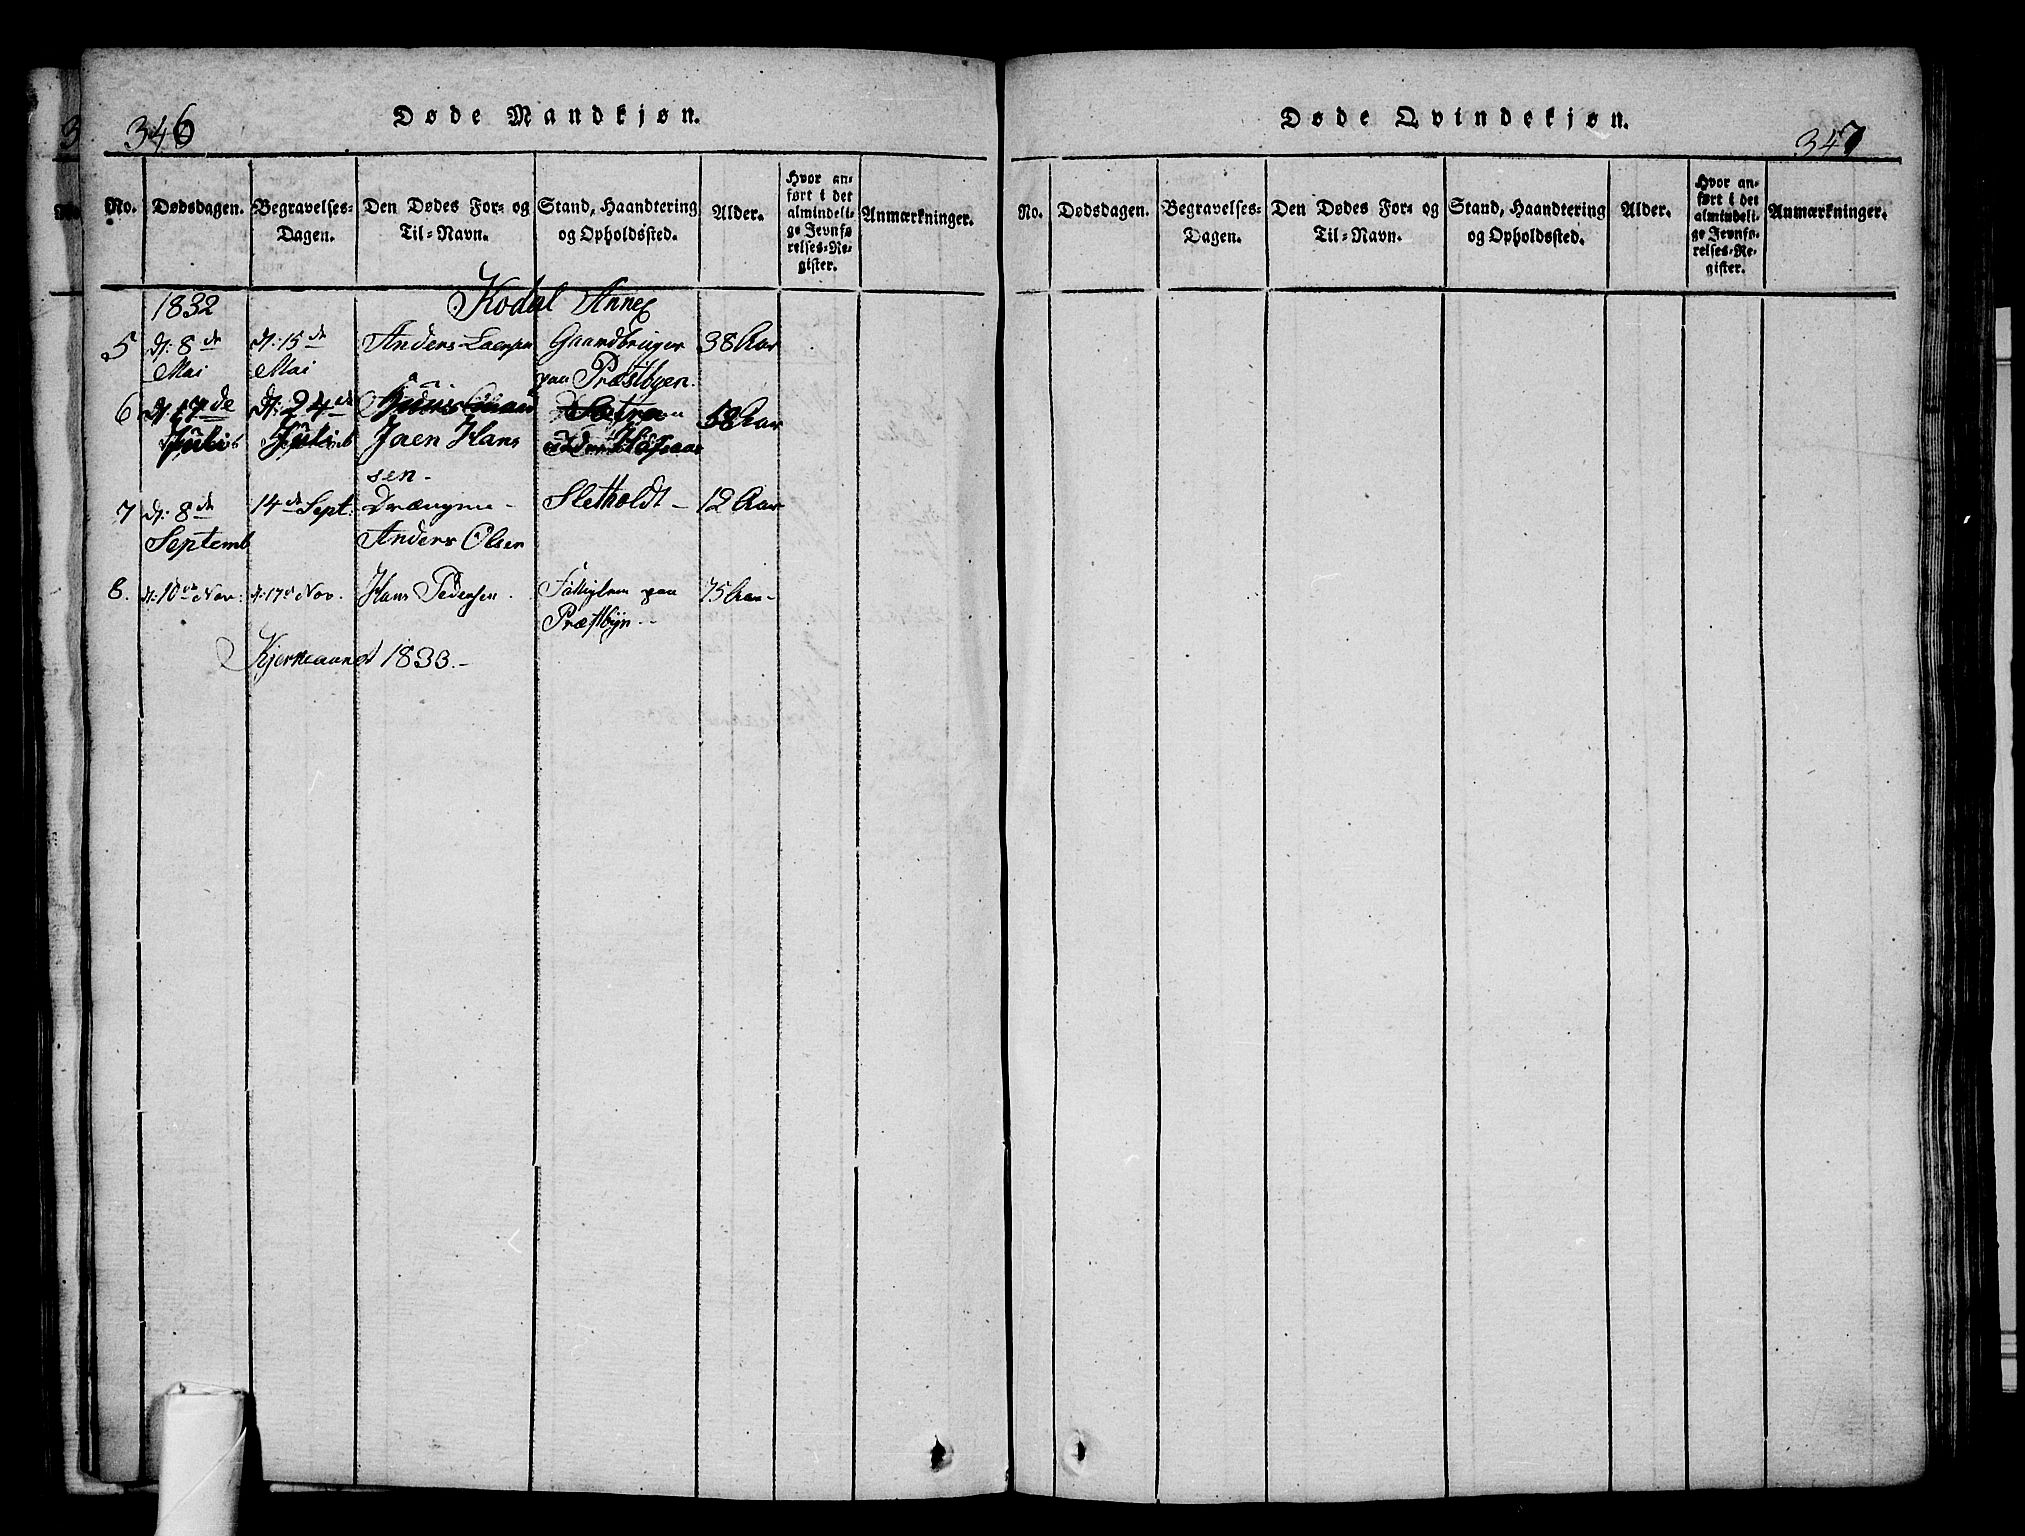 346
Døde Mandkjøn.
No.
Dødsdagen.
Begravelses-
Dagen.
Den Dødes For- og
Til-Navn.
Stand, Haandtering
og Opholdssted.
Alder.
Hvor an-
ført i det
almindeli-
ge Jevnfø-
relses-Re-
gister.
Anmærkninger.
1832
Kodal Annex
5
d: 8de
Mai
d: 15de
Mai
Anders Larsen
Gaardbruger
paa Præstbyen.
38 Aar
6
d: 17de
Juli
d: 24de
Juli
Hans
sen.
58 Aar
7
d: 8de
Septemb
14de Sept:
Anders Olsen
Sletholdt
12 Aar
8.
d: 10de Nov:
d: 17de Nov.
Hans Pedersen
paa
Præstbyn
75 Aar
1833.
Døde Qvindekjøn.
347
No.
Dødsdagen.
Begravelses-
Dagen.
Den Dødes For- og
Til-Navn.
Stand, Haandtering
og Opholdssted.
Alder.
Hvor an-
ført i det
almindeli-
ge Jevnfø-
relses-Re-
gister.
Anmærkninger.